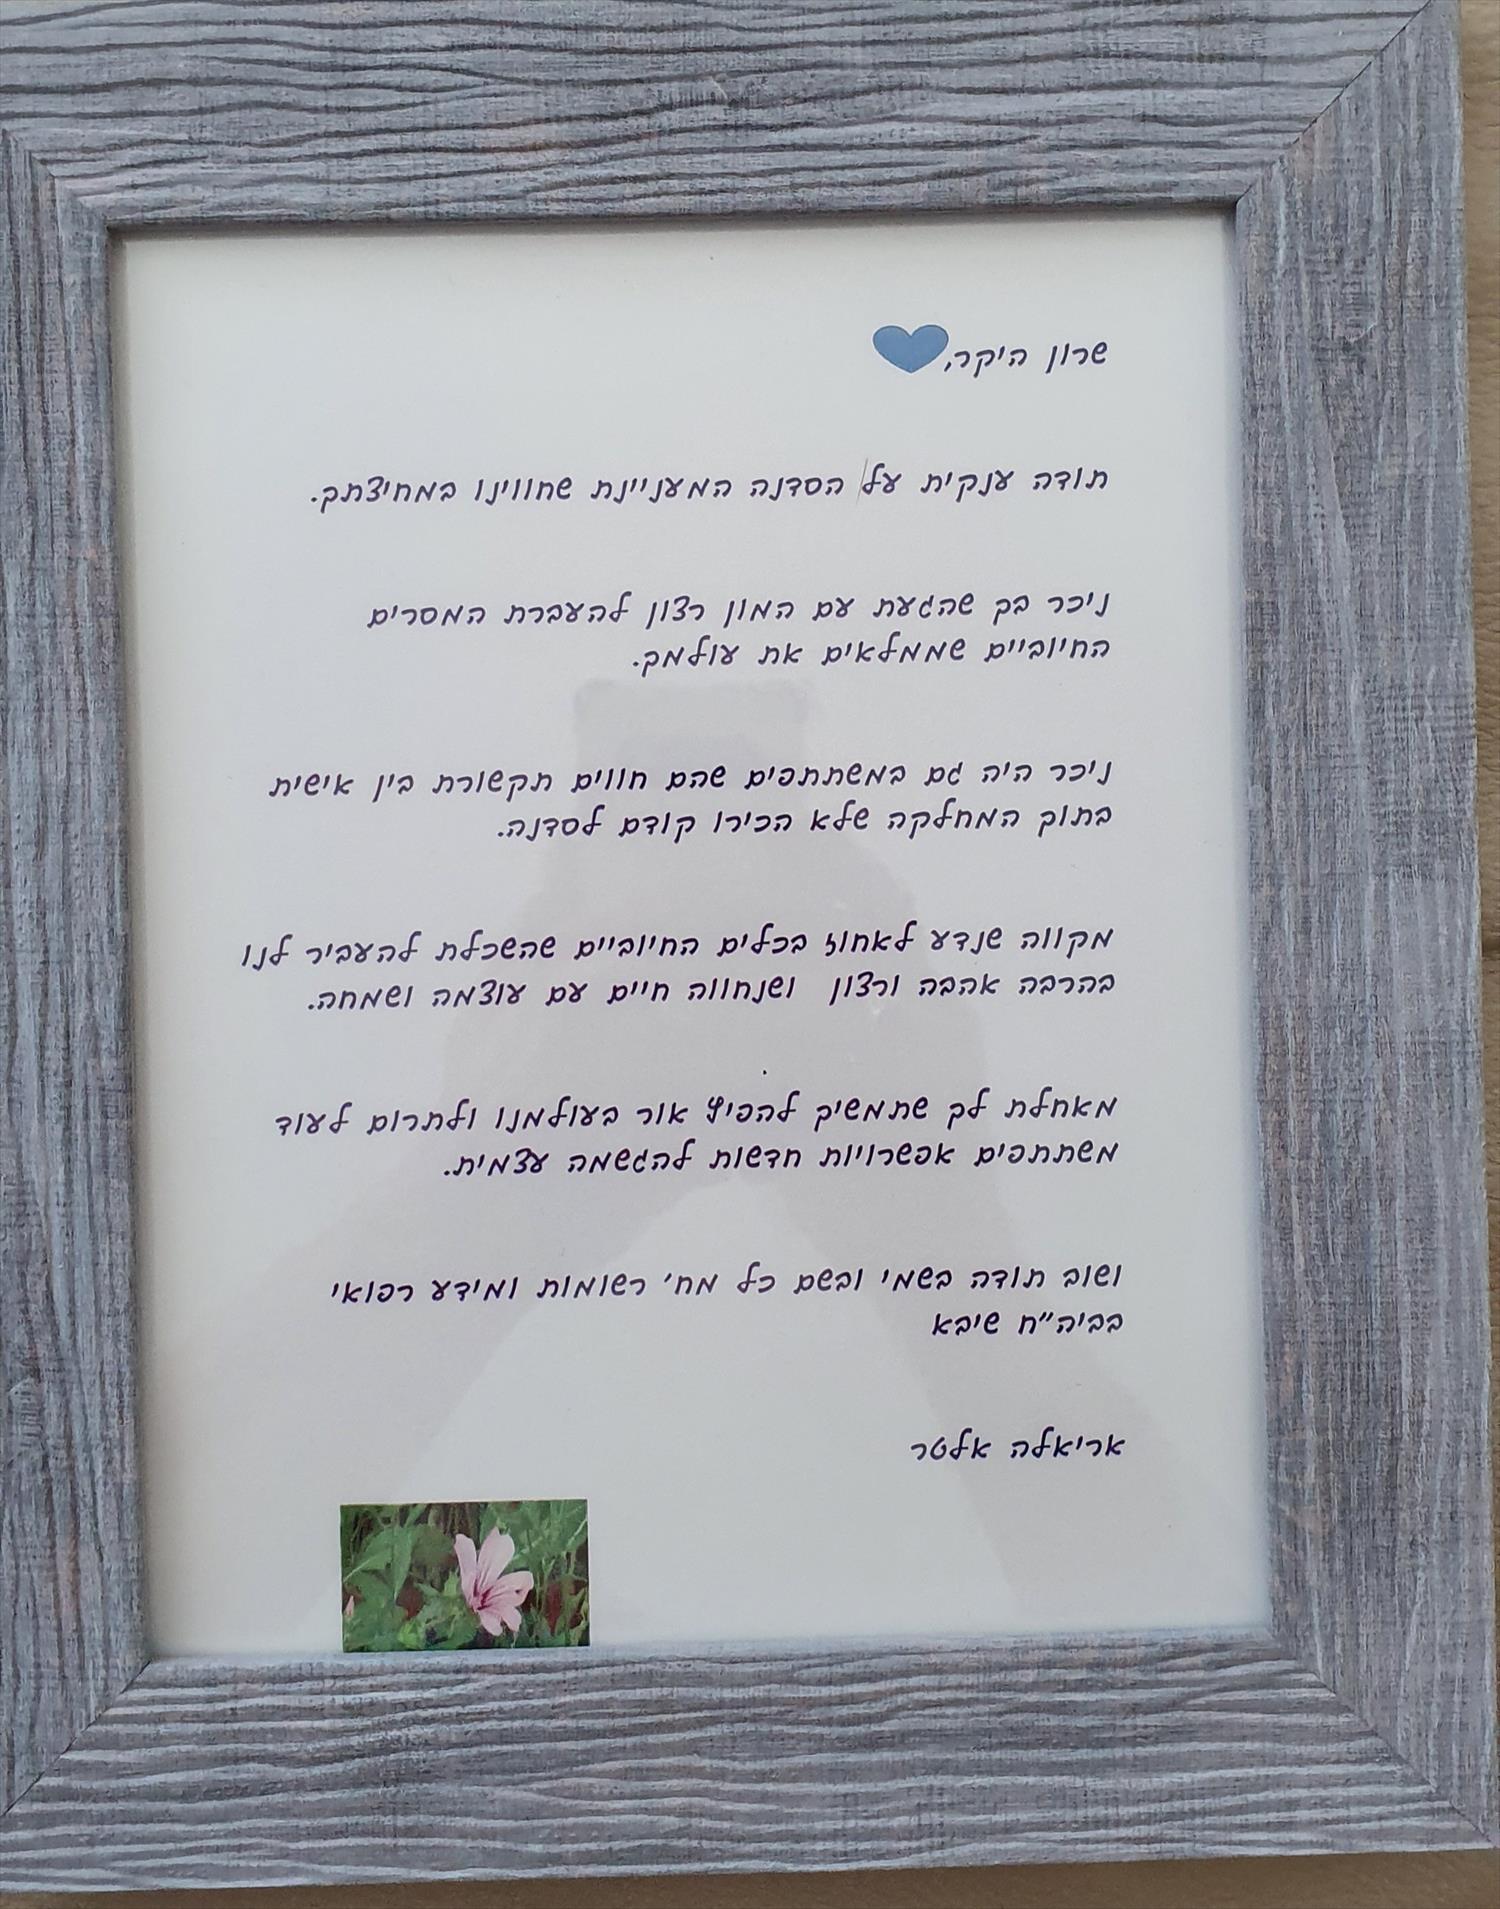 שרון היקר,
תודה ענקית על הסדנה המעניינת שחווינו במחיצתך.
ניכר בך שהגעת עם המון רצון להעברת המסרים
החיוביים שממלאים את עולמך.
ניכר היה גם במשתתפים שהם חווים תקשורת בין אישית
בתוך המחלקה שלא הכירו קודם לסדנה.
מקווה שנדע לאחוז בכלים החיוביים שהשכלת להעביר לנו
בהרבה אהבה ורצון ושנחווה חיים עם עוצמה ושמחה.
מאחלת לך שתמשיך להפיץ אור בעולמנו ולתרום לעוד
משתתפים אפשרויות חדשות להגשמה עצמית.
ושוב תודה בשמי ובשם כל מח' רשומות ומידע רפואי
בביה"ח שיבא
אריאלה אלטר